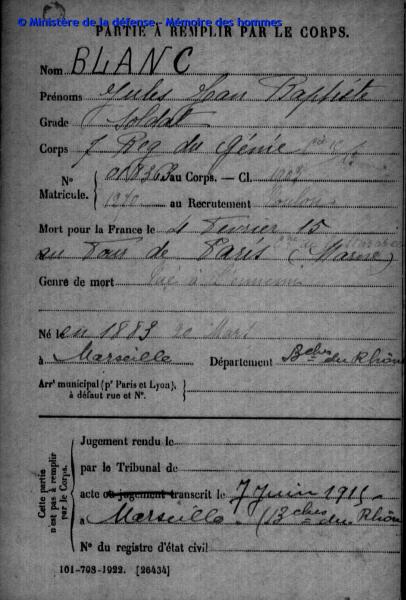 © Ministère de la défense - Mémoire des hommes
PARTIE À REMPLIR PAR LE CORPS.
Nom BLANC
Prénoms Jules Jean Baptiste
Grade Soldat
Corps 7 Reg du Génie
N° Matricule. au Corps. — Cl. 1903
1270 au Recrutement Toulon
Mort pour la France le 4 Fevrier 15
au Four de Paris (Marne)
Genre de mort Tué à l'ennemi
Né le en 1883 20 Mars
à Marseille Département Bches du Rhône
Arrt municipal (pr Paris et Lyon), à défaut rue et N°.
Cette partie n'est pas à remplir par le Corps.
Jugement rendu le
par le Tribunal de
acte ou jugement transcrit le 7 Juin 1915
à Marseille (Bches du Rhône
N° du registre d'état civil
101-708-1922. [26434]